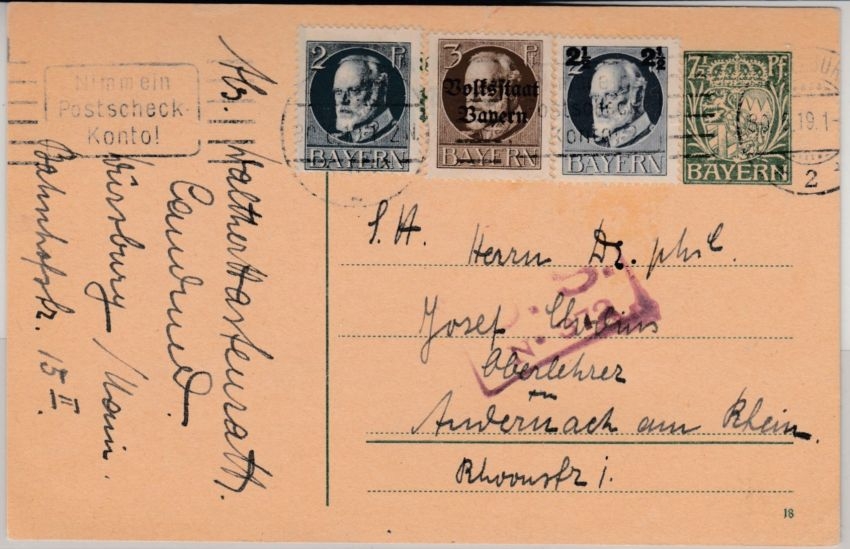 Nimm ein
Postscheck-
Konto!
2 Pf
BAYERN
3 Pf
Volksstaat
Bayern
BAYERN
2½ 2½
BAYERN
7½ Pf
BAYERN
19.1-
2
Abs. Walther Hastenrath.
Cand. med.
Würzburg / Main.
Bahnhofstr. 15 II.
S. H. Herrn Dr. phil.
Josef
Oberlehrer
in
Andernach am Rhein.
18